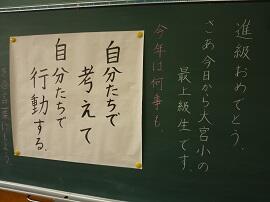 進級おめでとう。
さあ今日から大宮小の
最上級生です。
今年は何事も、
自分たちで
考えて
自分たちで
行動する。